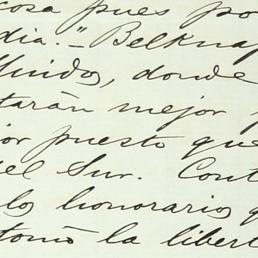 cosa pues po
dia." Belkna
Unidos, donde
tarán mejor y
or puesto que
del Sur. Cont
los honorarios q
tomo la libert